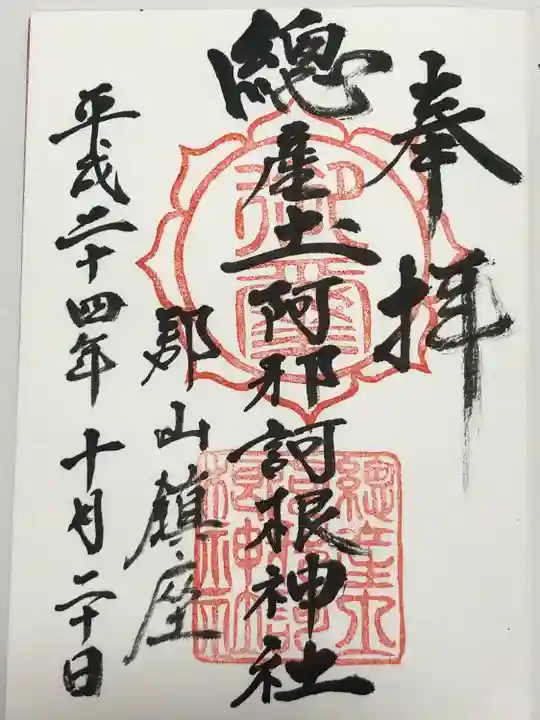 奉拝
總産土阿邪訶根神社
郡山鎮座
平成二十四年十月二十日
總産土